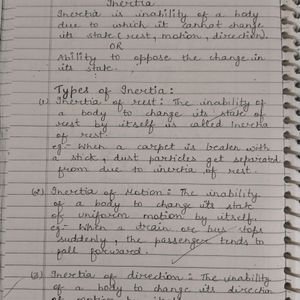 Inertia
Inertia is inability of a body
due to which it cannot change
its state (rest, motion, direction).
OR
Ability to oppose the change in
its state.
Types of Inertia:
(1) Inertia of rest: The inability of
a body to change its state of
rest by itself is called Inertia
of rest.
eg:- When a carpet is beaten with
a stick, dust particles get separated
from due to inertia of rest.
(2) Inertia of Motion: The inability
of a body to change its state
of uniform motion by itself.
eg:- When a train or bus stops
suddenly, the passenger tends to
fall forward.
(3) Inertia of direction: The inability
of a body to change its direction
of motion by itself